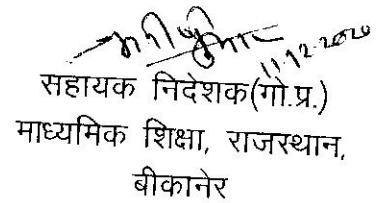 11.12.2020
सहायक निदेशक(गो.प्र.)
माध्यमिक शिक्षा, राजस्थान,
बीकानेर